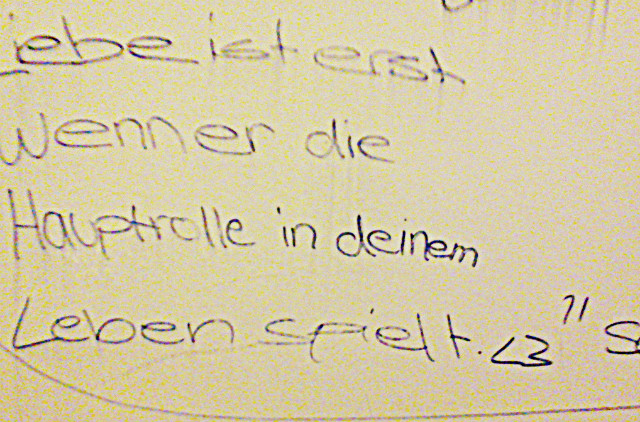 Liebe ist erst
wenn er die
Hauptrolle in deinem
Leben spielt. <3"